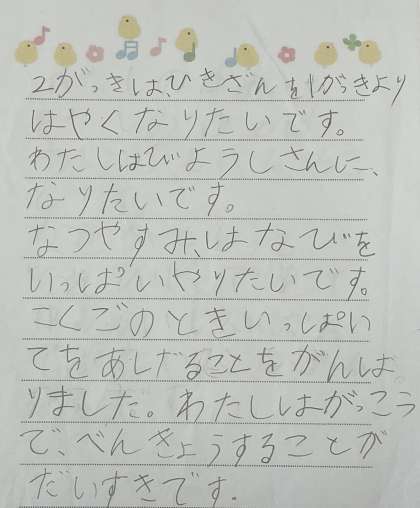 2がっきは、ひきざんを1がっきより
はやくなりたいです。
わたしはびようしさんに、
なりたいです。
なつやすみ、はなびを
いっぱいやりたいです。
こくごのときいっぱい
てをあげだることをがんば
りました。わたしはがっこう
で、べんきょうすることが
だいすきです。